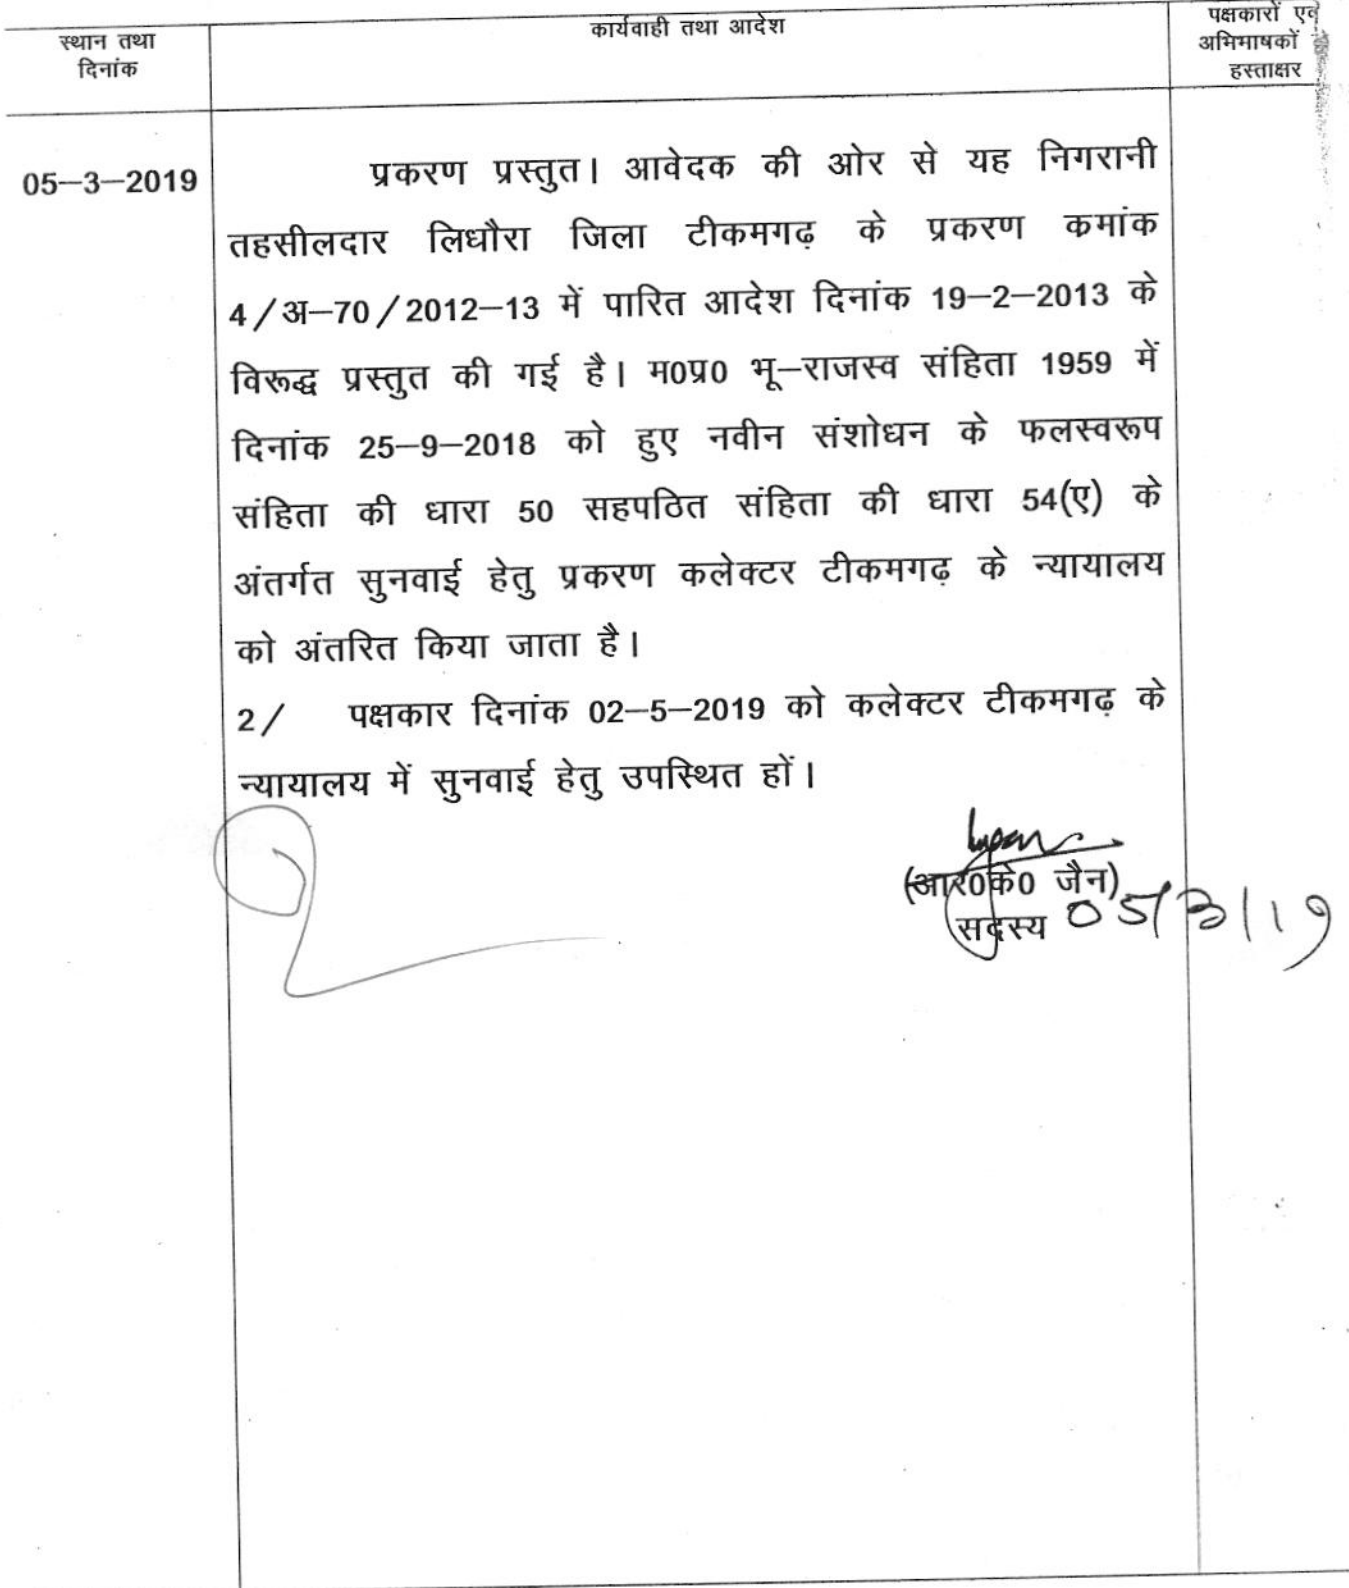 स्थान तथा
दिनांक
कार्यवाही तथा आदेश
पक्षकारों एवं
अभिभाषकों
हस्ताक्षर
05–3–2019
प्रकरण प्रस्तुत। आवेदक की ओर से यह निगरानी
तहसीलदार लिधौरा जिला टीकमगढ़ के प्रकरण कमांक
4/अ–70/2012–13 में पारित आदेश दिनांक 19–2–2013 के
विरूद्ध प्रस्तुत की गई है। म0प्र0 भू–राजस्व संहिता 1959 में
दिनांक 25–9–2018 को हुए नवीन संशोधन के फलस्वरूप
संहिता की धारा 50 सहपठित संहिता की धारा 54(ए) के
अंतर्गत सुनवाई हेतु प्रकरण कलेक्टर टीकमगढ़ के न्यायालय
को अंतरित किया जाता है।
2/ पक्षकार दिनांक 02–5–2019 को कलेक्टर टीकमगढ़ के
न्यायालय में सुनवाई हेतु उपस्थित हों।
(आर0के0 जैन)
सदस्य 05/3/19